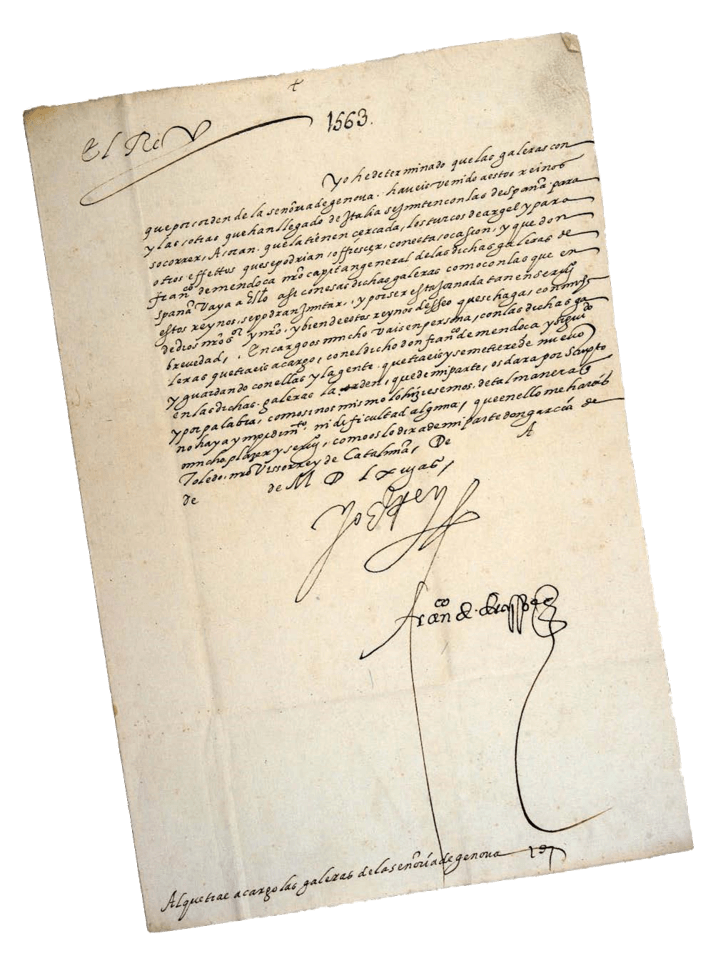 ✝
El Rey
1563.
Yo he determinado que las galeras con
que por orden de la señoria de genova. haueis venido a estos reinos
y las otras que han llegado de Italia se junten con las despaña. para
socorrer, A oran. que la tienen cercada, los turcos de argel, y para
otros effettos que se podrian, offrescer, con esta, ocasion, y que don
franco de mendoca nro capitan general de las dichas galeras de
spaña Vaya a Ello assi con essas dichas galeras como con las que en
estos reynos, se podran Juntar, y por ser esta Jornada tan en seruio
de dios nro sor y nro, y bien de estos reynos desseo que se haga, con mas
brevedad, Encargoos mucho vais en persona, con las dichas ga
leras que traeis a cargo, con el dicho don franco de mendoca y siguiendo
y guardando con ellas y la gente que traeis y se metiere de nuevo
en las dichas galeras la orden, que de mi parte, os dara por Scripto
y por palabra, como si nos mismo lo hiziesemos. de tal manera q̃
no haya ympedimto. ni dificultad alguna, que en ello me hareis
mucho plazer y seruio, como os lo dira de mi parte don garcia de
Toledo. nro Vissorrey de Cataluña, De A
de de M D Lxiij as,
Yo El Rey
Franco de. Erasso
Al que trae a cargo las galeras de la señoria de genova